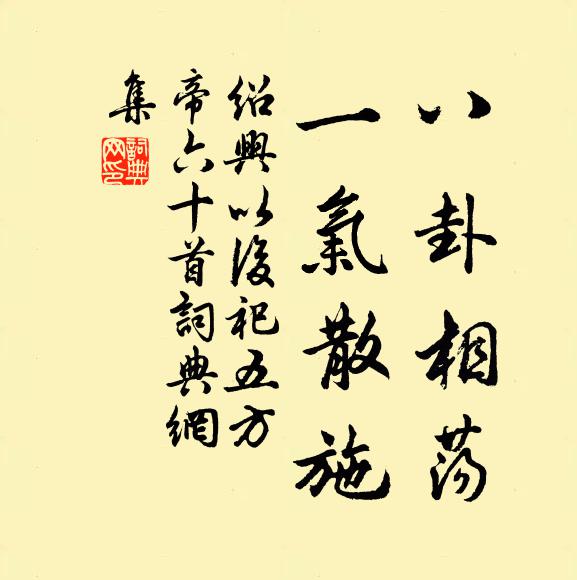 八卦相荡
一氣散施
紹興以後祀五方
帝六十首詞典網
集
詞典
网印